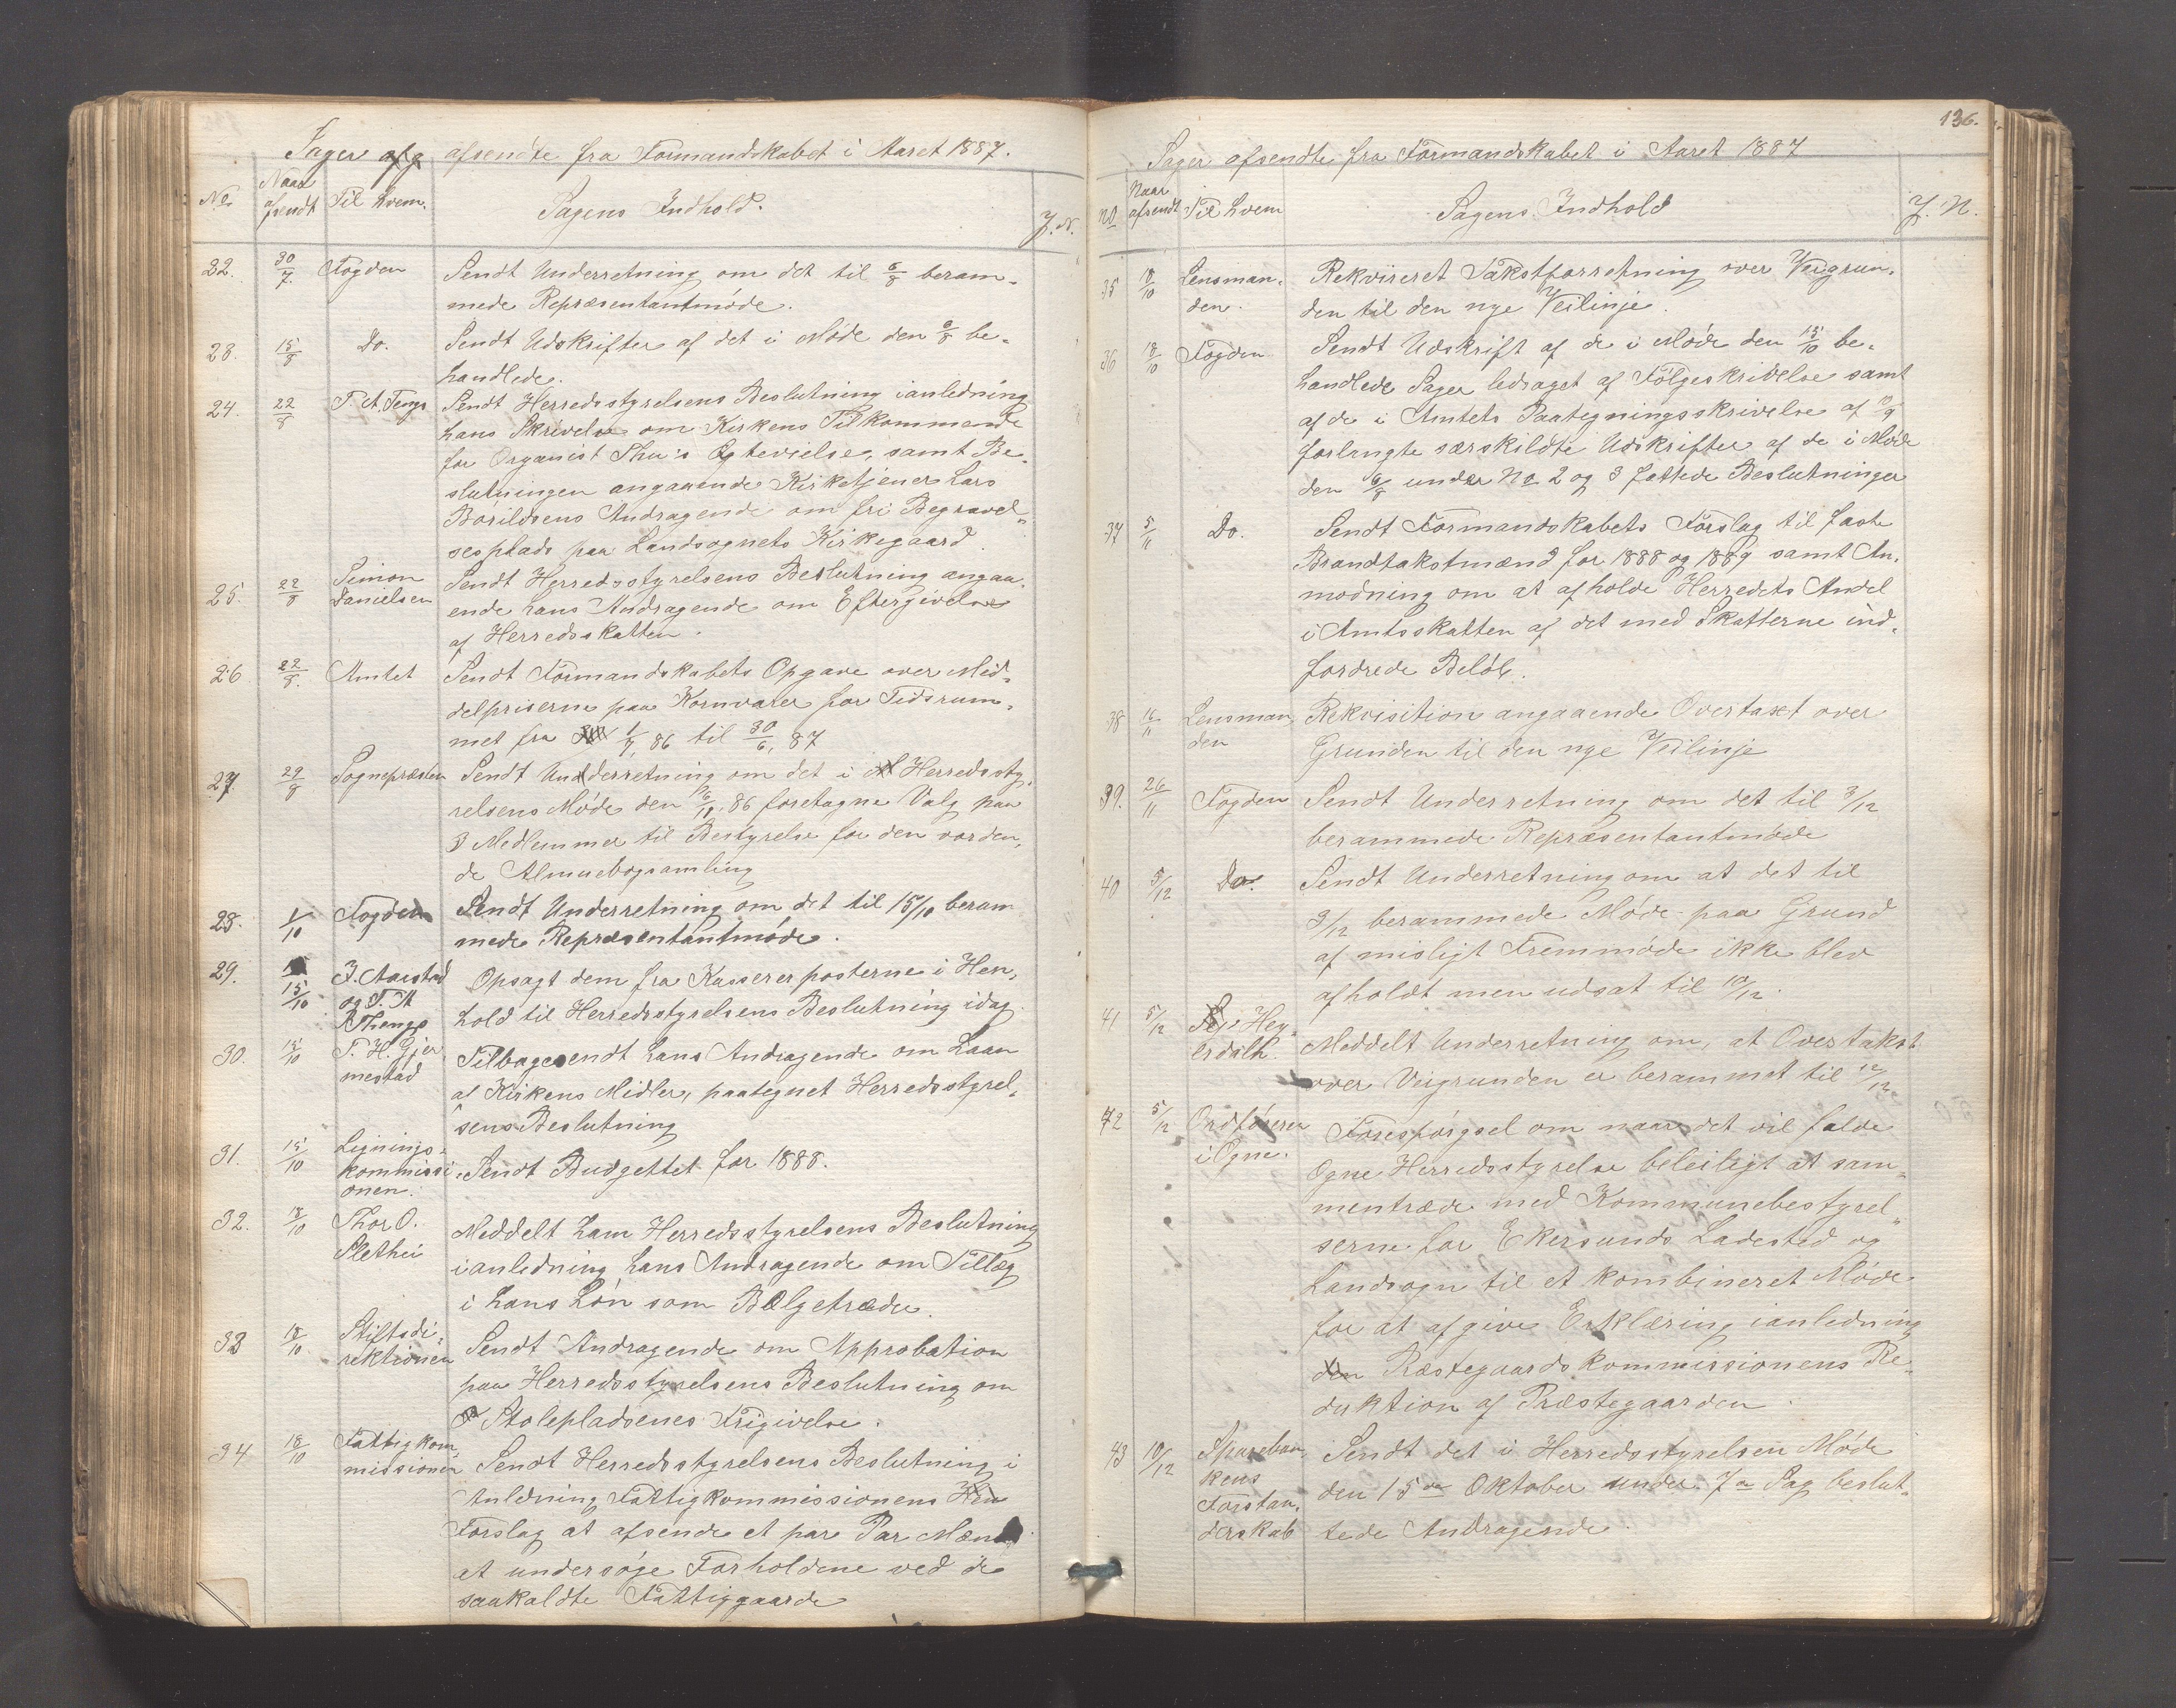 Sager afg afsendte fra Formandskabet i Aaret 1887.
No. Naar afsendt Til hvem. Sagens Indhold. J. N.
22. 30/7. Fogden Sendt Underretning om det til 6/8 beram-
mede Repræsentantmøde.
23. 15/8 Do. Sendt Udskrifter af det i Møde den 6/8 be-
handlede.
24. 22/8 T. A. Tengs Sendt Herredsstyrelsens Beslutning ianledning
hans Skrivelse om Kirkens Tilkommende
for Organist Thu's Egtevielse, samt Be-
slutningen angaaende Kirketjener Lars
Børildsens Andragende om fri Begravel-
sesplads paa Landsognets Kirkegaard.
25. 22/8 Simon Danielsen Sendt Herredsstyrelsens Beslutning angaa-
ende hans Andragende om Eftergivelse
af Herredsskatten.
26 22/8. Amtet Sendt Formandskabets Opgave over Mid-
delpriserne paa Kornvarer for Tidsrum-
met fra 1/7, 86 til 30/6, 87
27 29/8 Sognepræsten Sendt Underretning om det i Herredssty-
relsens Møde den 86 foretagne Valg paa
3 Medlemmer til Bestyrelse for den vorden-
de Almuebogsamling
28. 1/10 Fogden Sendt Underretning om det til 15/10 beram
mede Repræsentantmøde.
29. 15/10 J. Aarstad og T. A Thengs Opsagt dem fra Kassererposterne i Hen-
hold til Herredsstyrelsens Beslutning idag.
30. 15/10 T. H. Gjermestad Tilbagesendt hans Andragende om Laan
af Kirkens Midler, paategnet Herredsstyrel-
sens Beslutning
31. 15/10 Lignings-kommissionen. Sendt Budgettet for 1888.
32. 18/10 Thor O. Slethei Meddelt ham Herredsstyrelsens Beslutning
ianledning hans Andragende om Tillæg
i hans Løn som Bælgetræder.
33 18/10. Stiftsdi-rektionen Sendt Andragende om Approbation
paa Herredsstyrelsens Beslutning om
Stolepladsenes Frigivelse.
34 18/10 Fattigkom-missionen Sendt Herredsstyrelsens Beslutning i
Anledning Fattigkommissionens
Forslag at afsende et par Par Mænd
at undersøge Forholdene ved de
saakaldte Fattiggaarde
136.
Sager afsendte fra Formandskabet i Aaret 1887
No Naar afsendt Til hvem Sagens Indhold J. N.
35 18/10 Lensman-den. Rekvireret Takstforretning over Veigrun-
den til den nye Veilinje.
36 18/10 Fogden Sendt Udskrift af de i Møde den 15/10 be-
handlede Sager ledsaget af Følgeskrivelse samt
af de i Amtets Paategningsskrivelse af 10/9
forlangte særskildte Udskrifter af de i Møde
den 6/8 under No 2 og 3 fattede Beslutninger
37 5/11 Do. Sendt Formandskabets Forslag til faste
Brandtakstmænd for 1888 og 1889 samt An-
modning om at afholde Herredets Andel
i Amtsskatten af det med Skatterne ind-
fordrede Beløb.
38 16/11 Lensman-den Rekvisition angaaende Overtaxt over
Grunden til den nye Veilinje
39. 26/11 Fogden Sendt Underretning om det til 3/12
berammede Repræsentantmøde
40 5/12 Do. Sendt Underretning om at det til
3/12 berammede Møde paa Grund
af misligt Fremmøde ikke blev
afholdt men udsat til 10/12.
41 5/12 Hegerdalh. Meddelt Underretning om, at Overtakst
over Veigrunden er berammet til 12/12
42 5/12 Ordføreren i Ogne. Forespørgsel om naar det vil falde
Ogne Herredsstyrelse beleiligt at sam-
mentræde med Kommunebestyrel-
serne for Ekersunds Ladested og
Landsogn til et kombineret Møde
for at afgive Erklæring ianledning
den Præstegaardskommissionens Re-
duktion af Præstegaarden.
43 10/12 Spareban-kens Forstan-derskab Sendt det i Herredsstyrelsen Møde
den 15de Oktober under 7de Sag beslut-
tede Andragende.